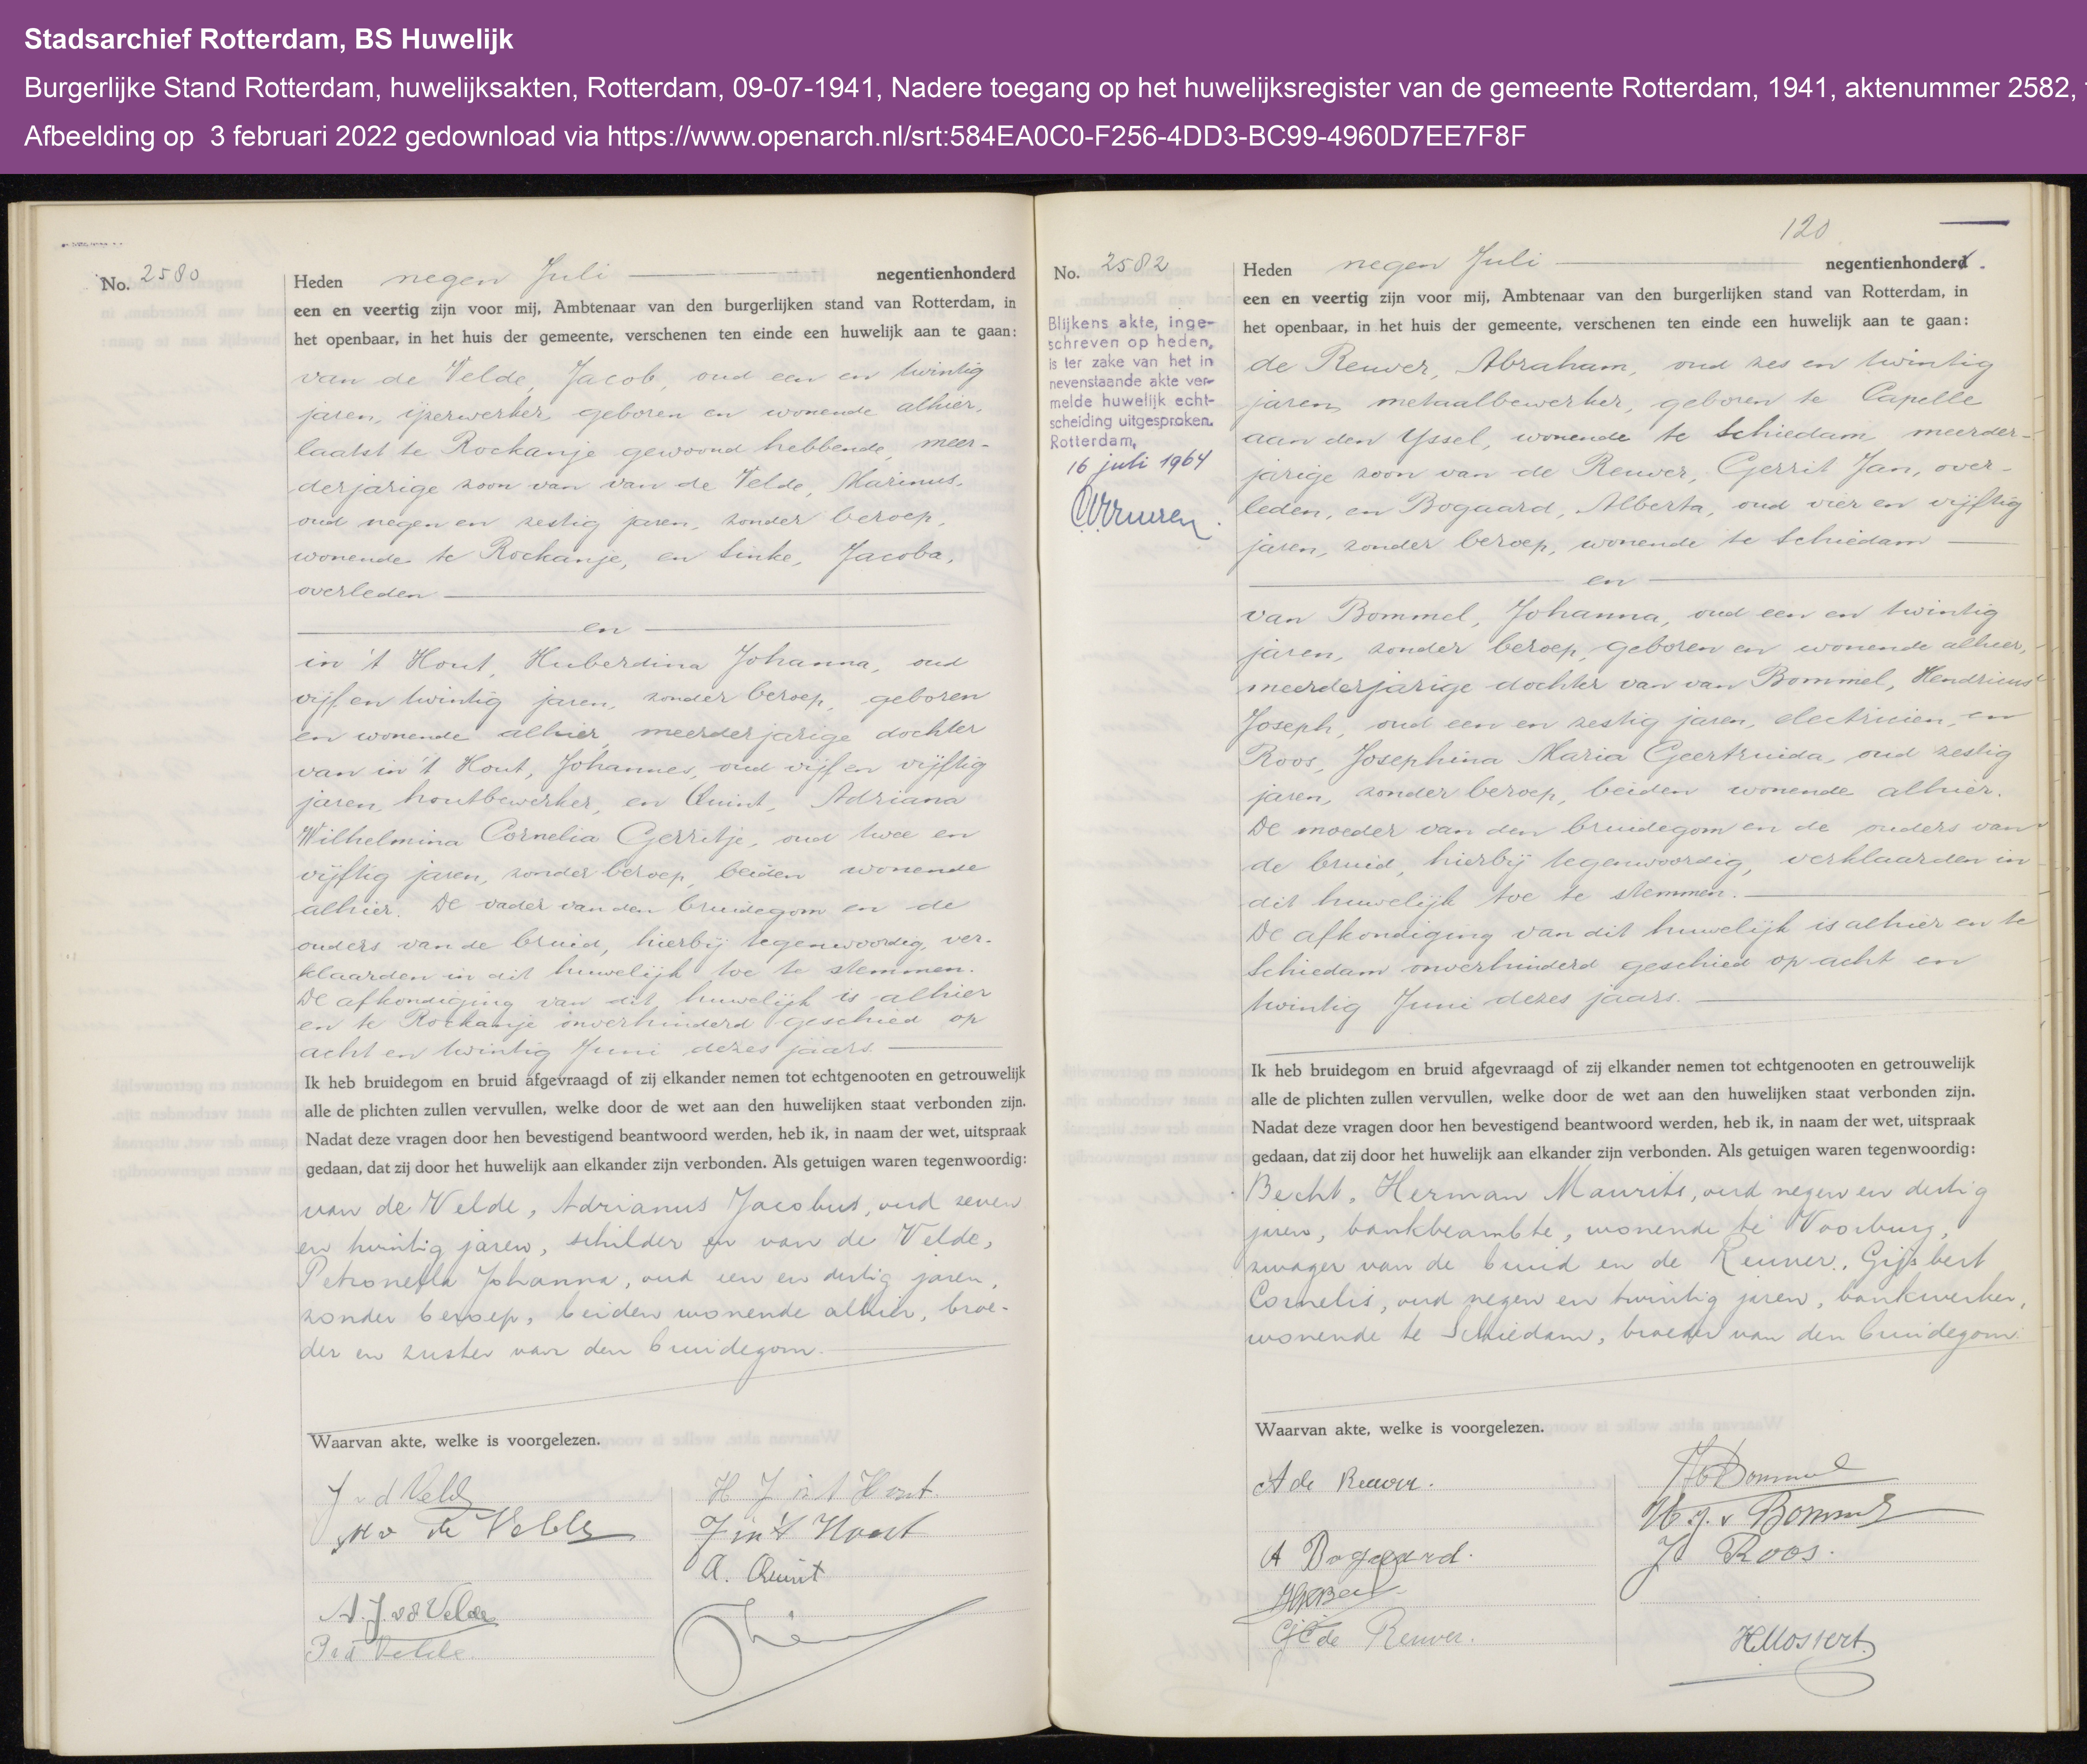 Stadsarchief Rotterdam, BS Huwelijk
Burgerlijke Stand Rotterdam, huwelijksakten, Rotterdam, 09-07-1941, Nadere toegang op het huwelijksregister van de gemeente Rotterdam, 1941, aktenummer 2582,
Afbeelding op 3 februari 2022 gedownload via https://www.openarch.nl/srt:584EA0C0-F256-4DD3-BC99-4960D7EE7F8F
No. 2580
Heden negen Juli negentienhonderd
een en veertig zijn voor mij, Ambtenaar van den burgerlijken stand van Rotterdam, in
het openbaar, in het huis der gemeente, verschenen ten einde een huwelijk aan te gaan:
van de Velde, Jacob, oud een en twintig
jaren, ijzerwerker, geboren en wonende alhier,
laatst te Rockanje gewoond hebbende, meer-
derjarige zoon van van de Velde, Marinus,
oud negen en zestig jaren, zonder beroep,
wonende te Rockanje, en Linke, Jacoba,
overleden
en
in 't Hout, Huberdina Johanna, oud
vijf en twintig jaren, zonder beroep, geboren
en wonende alhier, meerderjarige dochter
van in 't Hout, Johannes, oud vijf en vijftig
jaren, houtbewerker, en Quint, Adriana
Wilhelmina Cornelia Gerritje, oud twee en
vijftig jaren, zonder beroep, beiden wonende
alhier. De vader van den bruidegom en de
ouders van de bruid, hierbij tegenwoordig, ver-
klaarden in dit huwelijk toe te stemmen.
De afkondiging van dit huwelijk is alhier
en te Rockanje onverhinderd geschied op
acht en twintig Juni dezes jaars.
Ik heb bruidegom en bruid afgevraagd of zij elkander nemen tot echtgenooten en getrouwelijk
alle de plichten zullen vervullen, welke door de wet aan den huwelijken staat verbonden zijn.
Nadat deze vragen door hen bevestigend beantwoord werden, heb ik, in naam der wet, uitspraak
gedaan, dat zij door het huwelijk aan elkander zijn verbonden. Als getuigen waren tegenwoordig:
van de Velde, Adrianus Jacobus, oud zeven
en twintig jaren, schilder en van de Velde,
Petronella Johanna, oud een en dertig jaren,
zonder beroep, beiden wonende alhier, broe-
der en zuster van den bruidegom.
Waarvan akte, welke is voorgelezen.
J v d Velde
M v de Velde
A. J. v d Velde
P v d Velde.
H J in 't Hout.
J in 't Hout
A. Quint
120
No. 2582
Blijkens akte, inge-
schreven op heden,
is ter zake van het in
nevenstaande akte ver-
melde huwelijk echt-
scheiding uitgesproken.
Rotterdam,
16 juli 1964
Heden negen Juli negentienhonderd
een en veertig zijn voor mij, Ambtenaar van den burgerlijken stand van Rotterdam, in
het openbaar, in het huis der gemeente, verschenen ten einde een huwelijk aan te gaan:
de Reuver, Abraham, oud zes en twintig
jaren, metaalbewerker, geboren te Capelle
aan den Yssel, wonende te Schiedam, meerder-
jarige zoon van de Reuver, Gerrit Jan, over-
leden, en Bogaard, Alberta, oud vier en vijftig
jaren, zonder beroep, wonende te Schiedam
en
van Bommel, Johanna, oud een en twintig
jaren, zonder beroep, geboren en wonende alhier,
meerderjarige dochter van van Bommel, Hendricus
Joseph, oud een en zestig jaren, electricien, en
Roos, Josephina Maria Geertruida, oud zestig
jaren, zonder beroep, beiden wonende alhier.
De moeder van den bruidegom en de ouders van
de bruid, hierbij tegenwoordig, verklaarden in
dit huwelijk toe te stemmen.
De afkondiging van dit huwelijk is alhier en te
Schiedam onverhinderd geschied op acht en
twintig Juni dezes jaars.
Ik heb bruidegom en bruid afgevraagd of zij elkander nemen tot echtgenooten en getrouwelijk
alle de plichten zullen vervullen, welke door de wet aan den huwelijken staat verbonden zijn.
Nadat deze vragen door hen bevestigend beantwoord werden, heb ik, in naam der wet, uitspraak
gedaan, dat zij door het huwelijk aan elkander zijn verbonden. Als getuigen waren tegenwoordig:
Becht, Herman Maurits, oud negen en dertig
jaren, bankbeambte, wonende te Voorburg,
zwager van de bruid en de Reuver, Gijsbert
Cornelis, oud negen en twintig jaren, bankwerker,
wonende te Schiedam, broeder van den bruidegom.
Waarvan akte, welke is voorgelezen.
A de Reuver.
A Bogaard.
GC de Reuver.
J v Bommel
H. J. v Bommel
J Roos.
H Mostert.